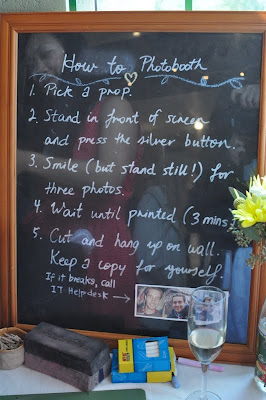 How to Photobooth
1. Pick a prop.
2. Stand in front of screen
and press the silver button.
3. Smile (but stand still!) for
three photos.
4. Wait until printed (3 mins)
5. Cut and hang up on wall.
Keep a copy for yourself.
If it breaks, call
IT Helpdesk →